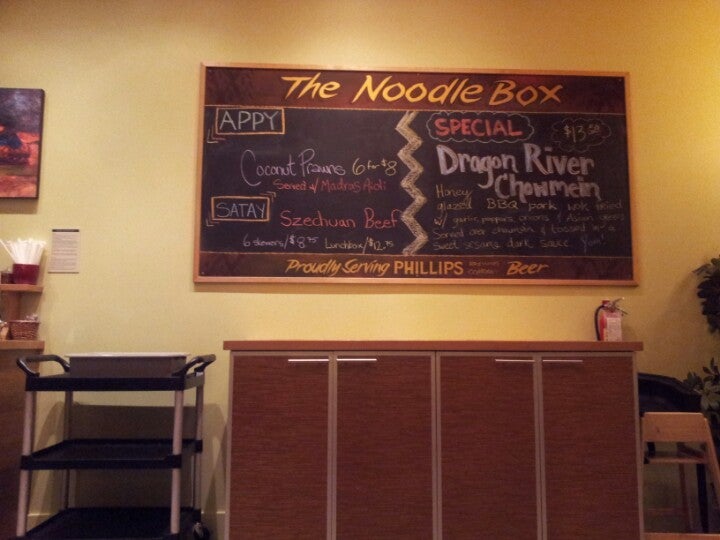 The Noodle Box
APPY
Coconut Prawns 6 for $8
Served w/ Madras Aioli
SATAY
Szechuan Beef
6 skewers/$8.75 Lunchbox/$12.75
SPECIAL
$13.50
Dragon River
Chowmein
Honey
glazed BBQ pork wok fried
w/ garlic, peppers, onions & Asian greens
Served over chowmein & tossed in a
sweet sesame dark sauce. Yum!
Proudly Serving PHILLIPS Beer